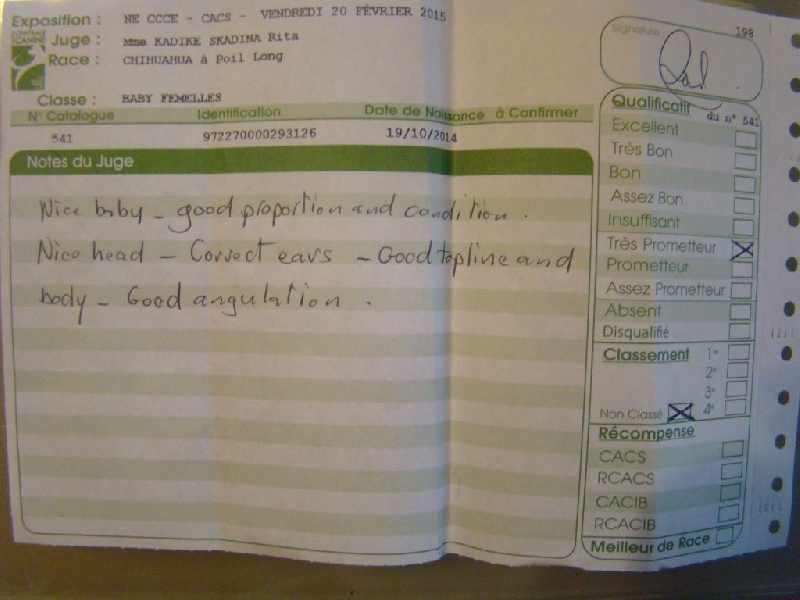 Exposition : NE CCCE - CACS - VENDREDI 20 FÉVRIER 2015
CENTRALE CANINE
Juge : Mme KADIKE SKADINA Rita
Race : CHIHUAHUA à Poil Long
Classe : BABY FEMELLES
N° Catalogue Identification Date de Naissance à Confirmer
541 972270000293126 19/10/2014
Notes du Juge
Nice baby - good proportion and condition .
Nice head - Correct ears - Good topline and
body - Good angulation .
Signature 198
Qualificatif du n° 541
Excellent
Très Bon
Bon
Assez Bon
Insuffisant
Très Prometteur
Prometteur
Assez Prometteur
Absent
Disqualifié
Classement 1er
2e
3e
Non Classé 4e
Récompense
CACS
RCACS
CACIB
RCACIB
Meilleur de Race